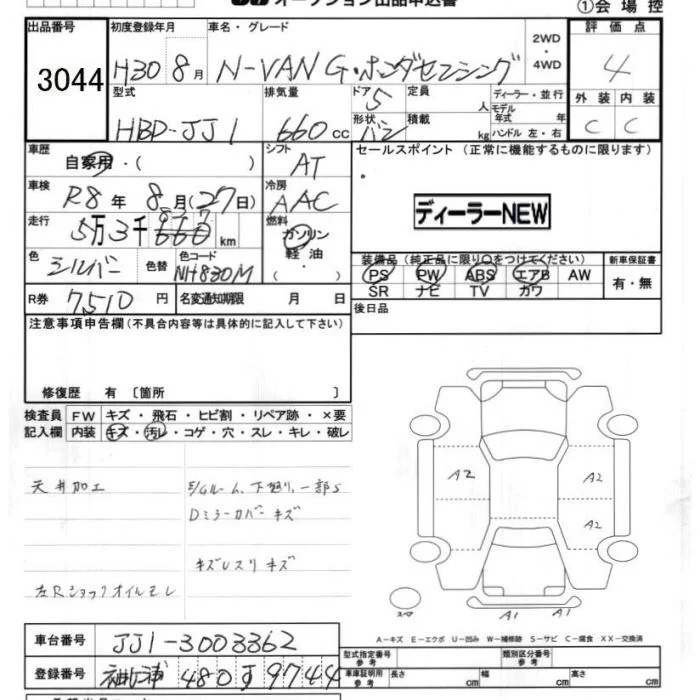 ①会場控
出品番号 初度登録年月 車名・グレード 2WD・4WD 評価点
3044 H30 8月 N-VAN G・ホンダセンシング 4
型式 排気量 ドア 定員 人 ディーラー・並行 外装 内装
HBD-JJ1 660cc 5 形状 バン 積載 kg モデル年式 年 ハンドル 左・右 C C
車歴 自家用・( ) シフト AT セールスポイント (正常に機能するものに限ります)
車検 R8年 8月(27日) 冷房 AAC
ディーラーNEW
走行 5万3千 km 燃料 ガソリン 軽油・
色 シルバー 色替 色コード NH830M
装備品 (純正品に限り○をつけてください) 新車保証書
PS PW ABS エアB AW 有・無
SR ナビ TV カワ
R券 7510円 名変通知期限 月 日
後日品
注意事項申告欄(不具合内容等は具体的に記入して下さい)
修復歴 有 〔箇所 〕
検査員 FW キズ・飛石・ヒビ割・リペア跡・×要
記入欄 内装 キズ・汚レ・コゲ・穴・スレ・キレ・破レ
天井加工
Dミラーカバーキズ
キズUスリキズ
左Rショックオイルモレ
A2 A2
A2
A1 A1
スペア
A-キズ E-エクボ U-凹み W-補修跡 S-サビ C-腐食 XX-交換済
車台番号 JJ1-3003362
型式指定番号 参考 類別区分番号 参考
登録番号 袖ヶ浦 480 す 9744
車庫証明用 参考 長さ cm 幅 cm 高さ cm